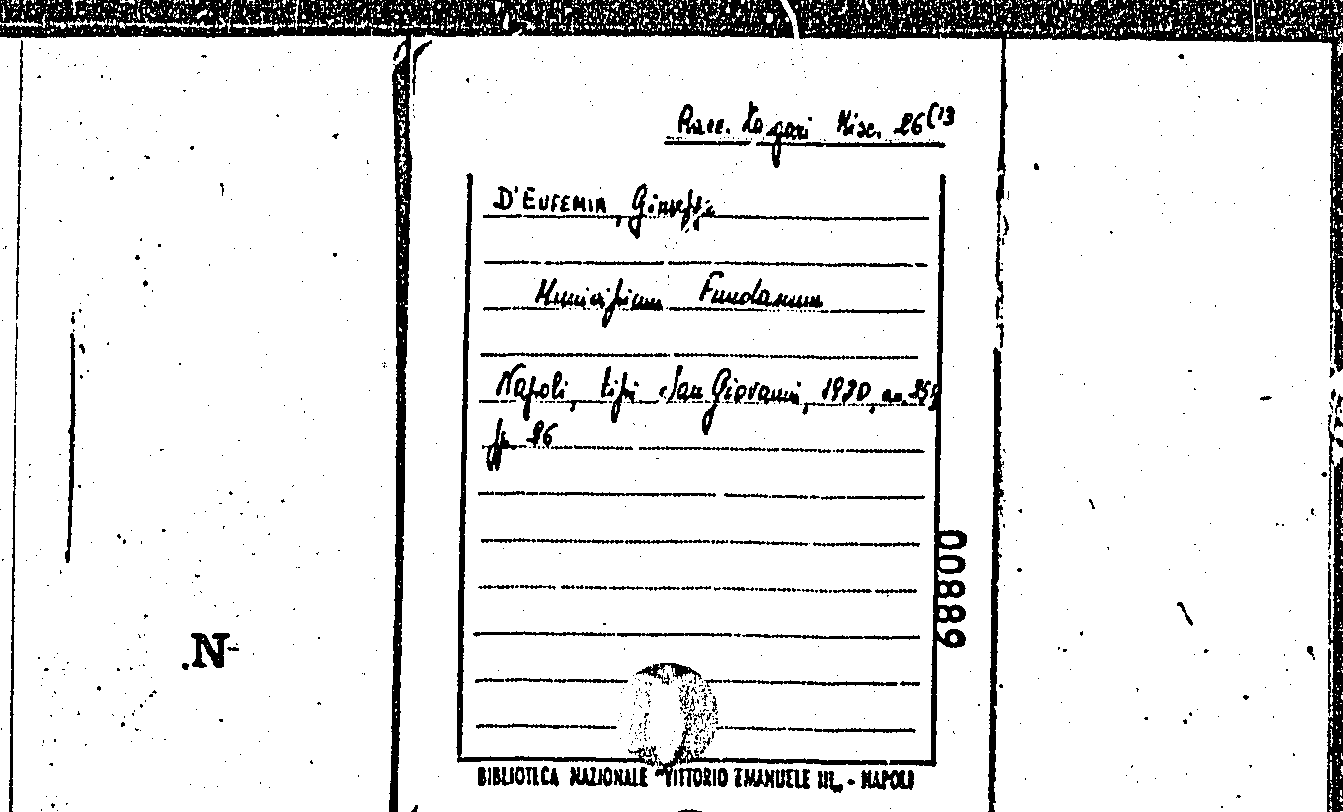 Racc. Zagari Misc. 26(13
D'EUFEMIA, Giuseppe
Municipium Fundanum
Napoli, tipi San Giovanni, 1930, in
pp. 26
00889
.N-
BIBLIOTECA NAZIONALE "VITTORIO EMANUELE III„ - NAPOLI